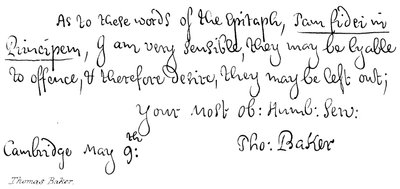 As to these words of the Epitaph, Tam fidei in
Principem, I am very sensible, they may be lyable
to offence, & therefore desire, they may be left out;
Your most ob: Humb: Serv:
Cambridge May 9:th Tho: Baker
Thomas Baker.